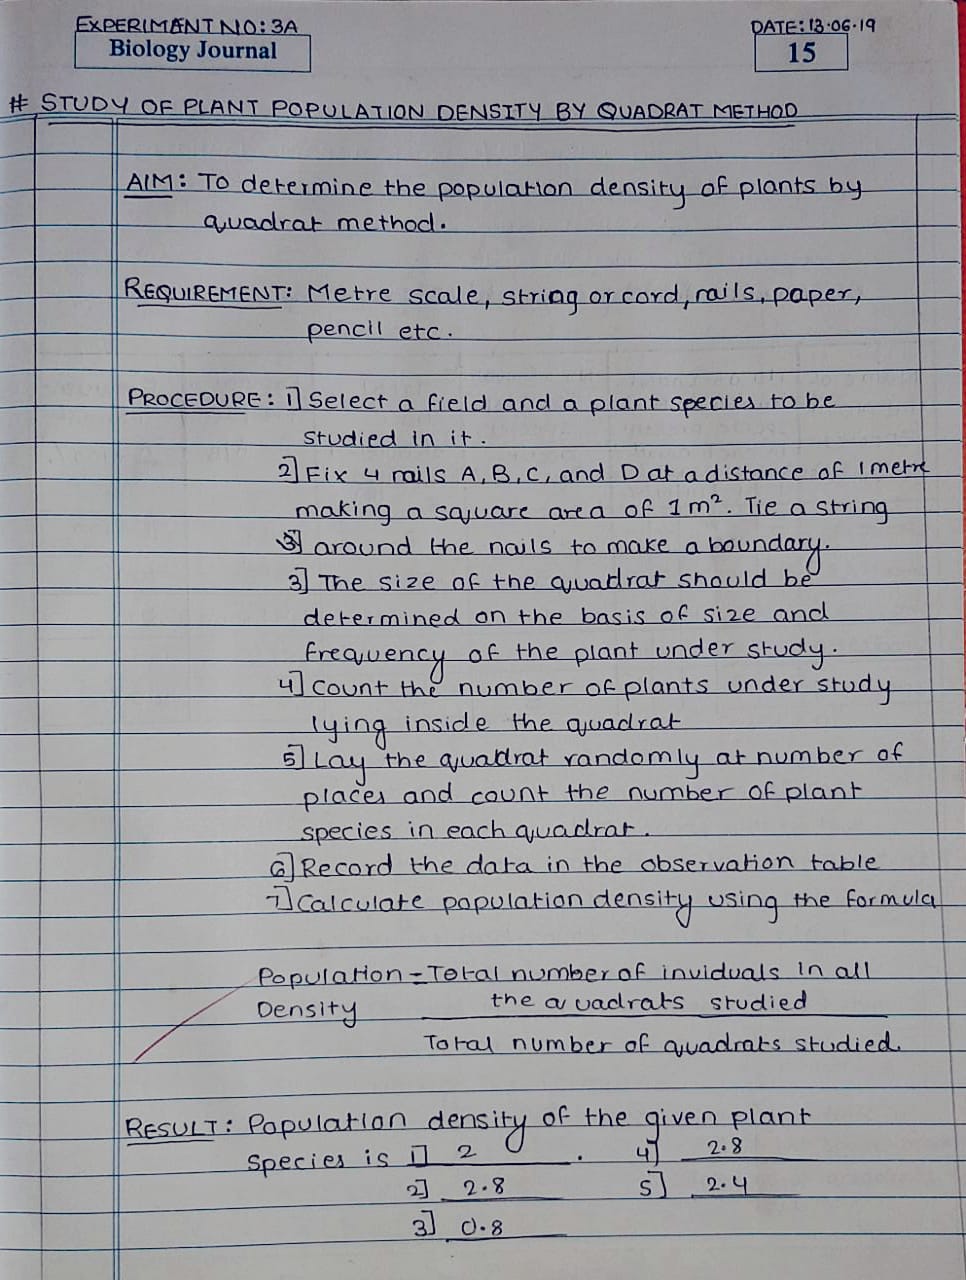 EXPERIMENT NO: 3A
DATE: 13.06.19
Biology Journal
15
# STUDY OF PLANT POPULATION DENSITY BY QUADRAT METHOD
AIM: To determine the population density of plants by
quadrat method.
REQUIREMENT: Metre scale, string or cord, nails, paper,
pencil etc.
PROCEDURE: 1] Select a field and a plant species to be
studied in it.
2] Fix 4 nails A, B, C, and D at a distance of 1 metre
making a square area of 1 m². Tie a string
around the nails to make a boundary.
3] The size of the quadrat should be
determined on the basis of size and
frequency of the plant under study.
4] Count the number of plants under study
lying inside the quadrat
5] Lay the quadrat randomly at number of
places and count the number of plant
species in each quadrat.
6] Record the data in the observation table
7] Calculate population density using the formula
Population = Total number of inviduals in all
Density the quadrats studied
Total number of quadrats studied.
RESULT: Population density of the given plant
species is 1] 2 . 4] 2.8
2] 2.8 5] 2.4
3] 0.8